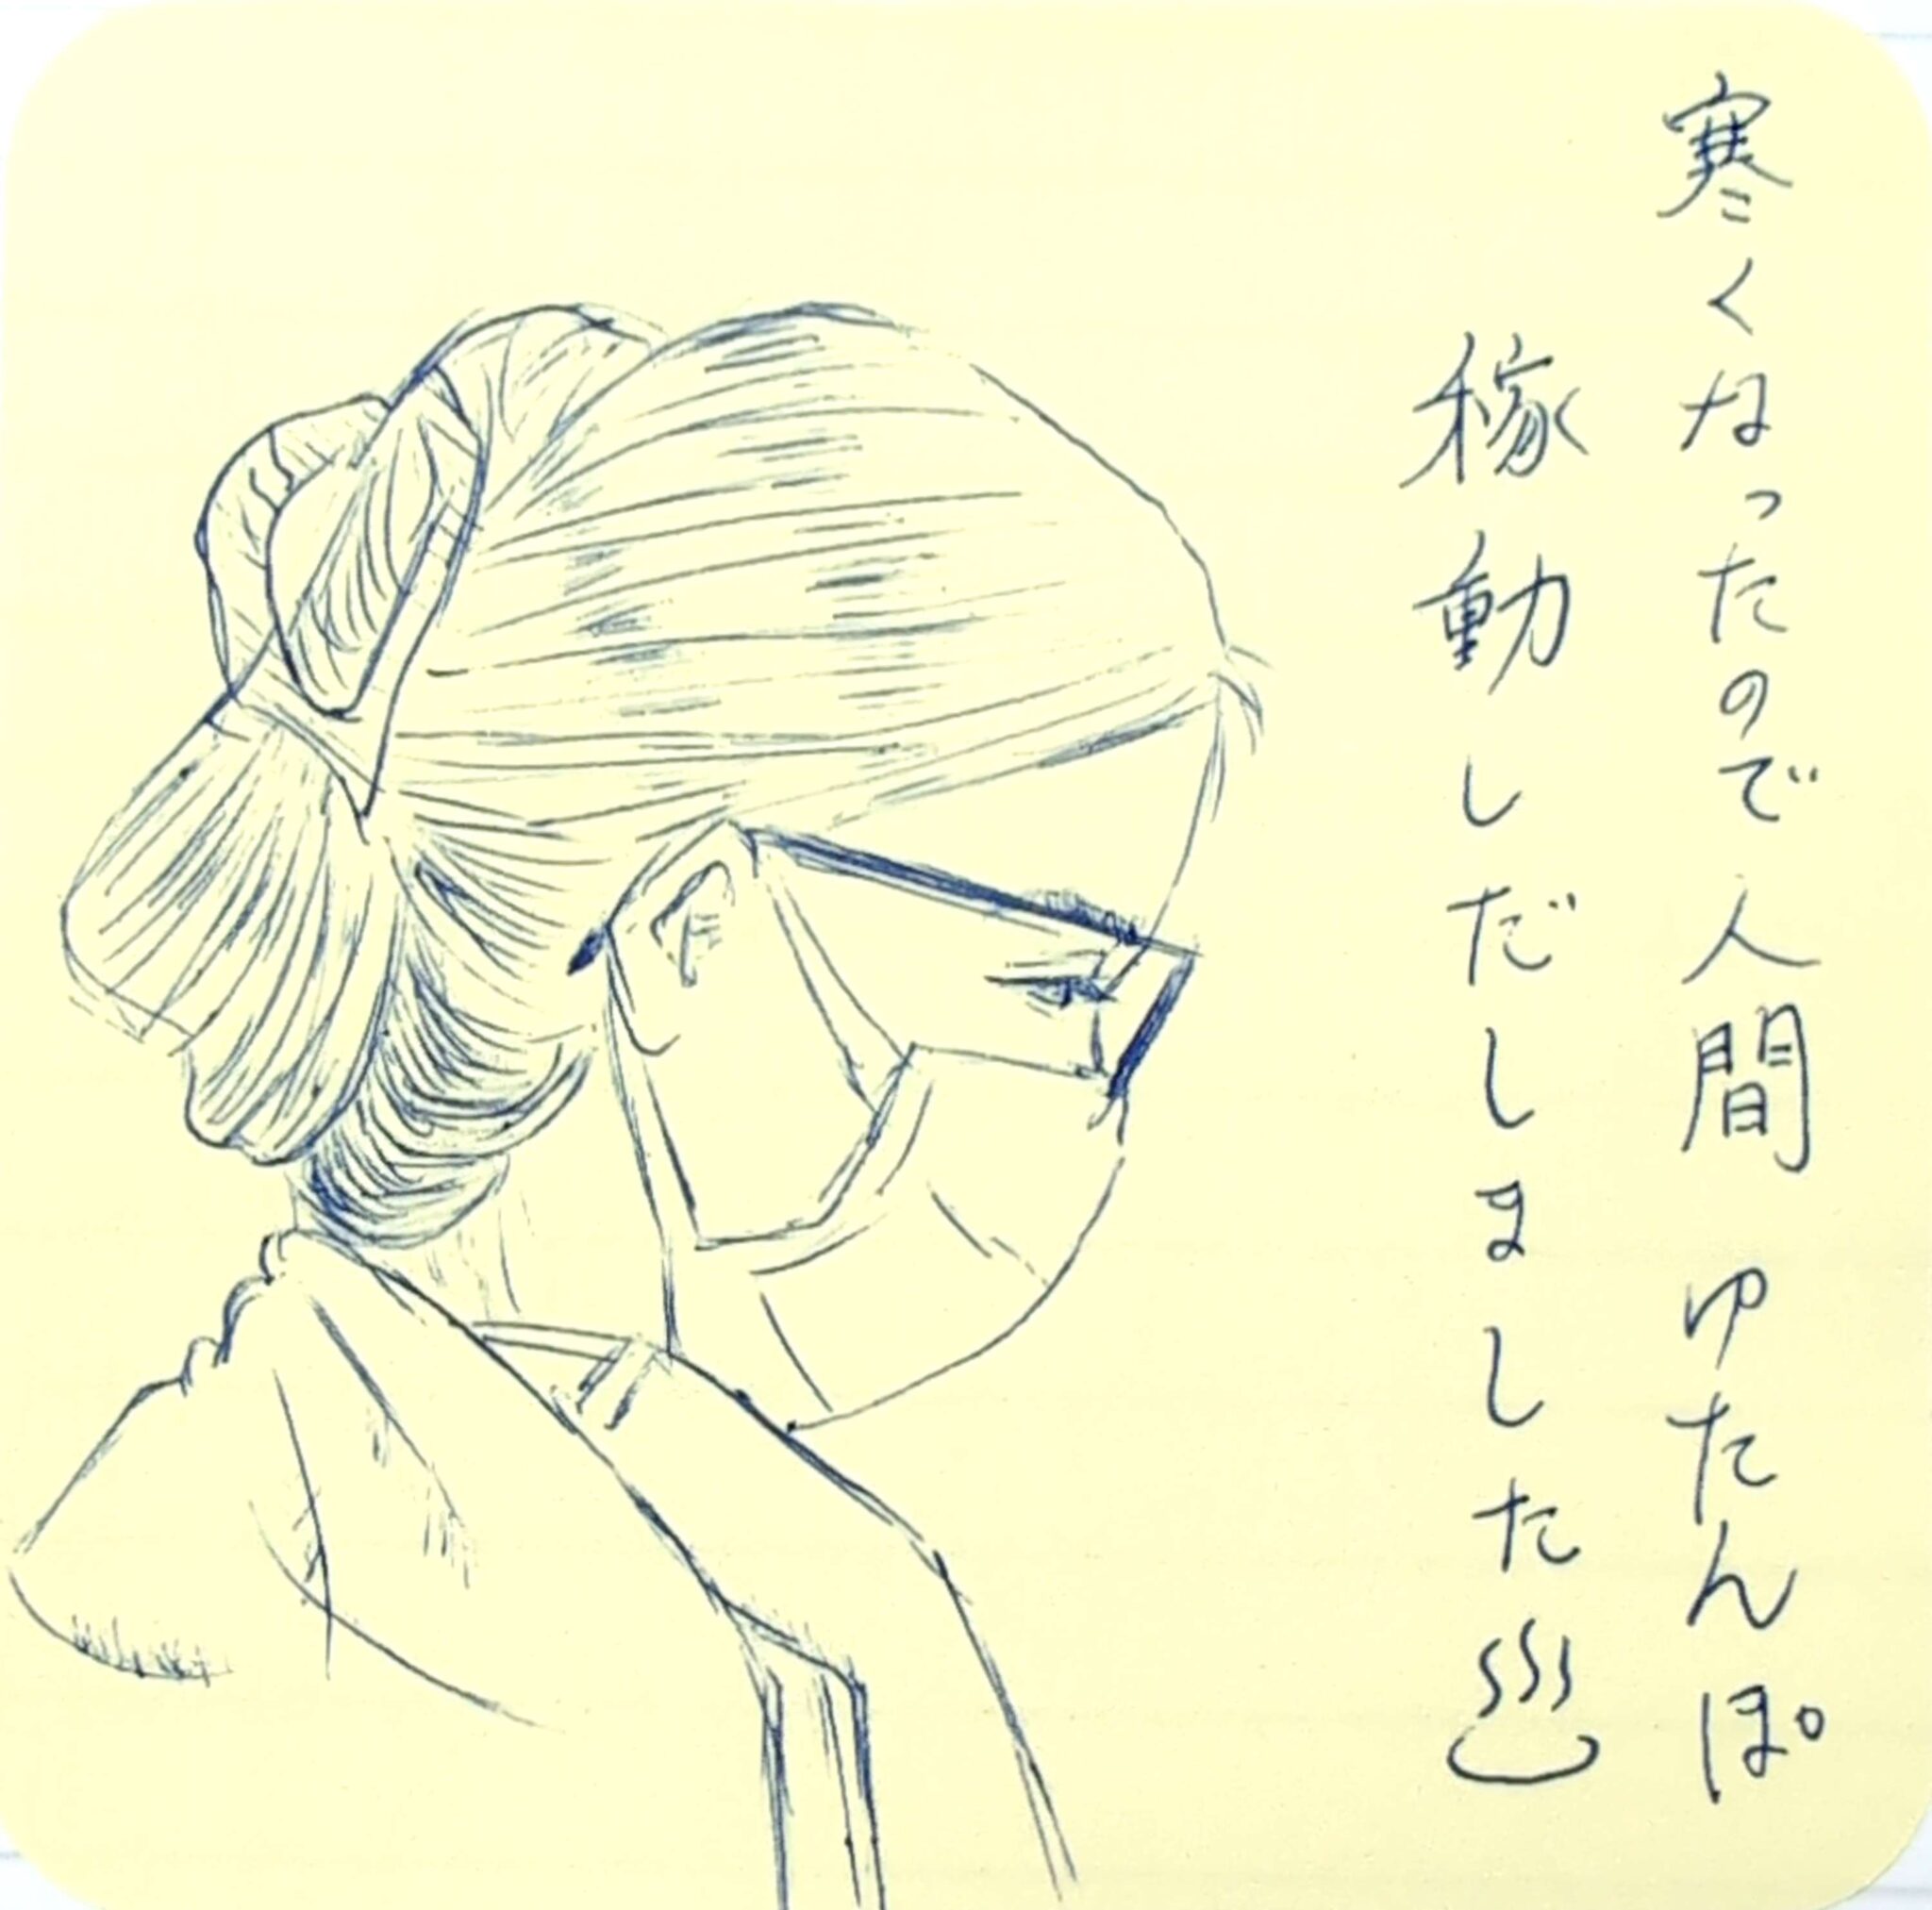 寒くなったので人間ゆたんぽ
稼動しだしました♨